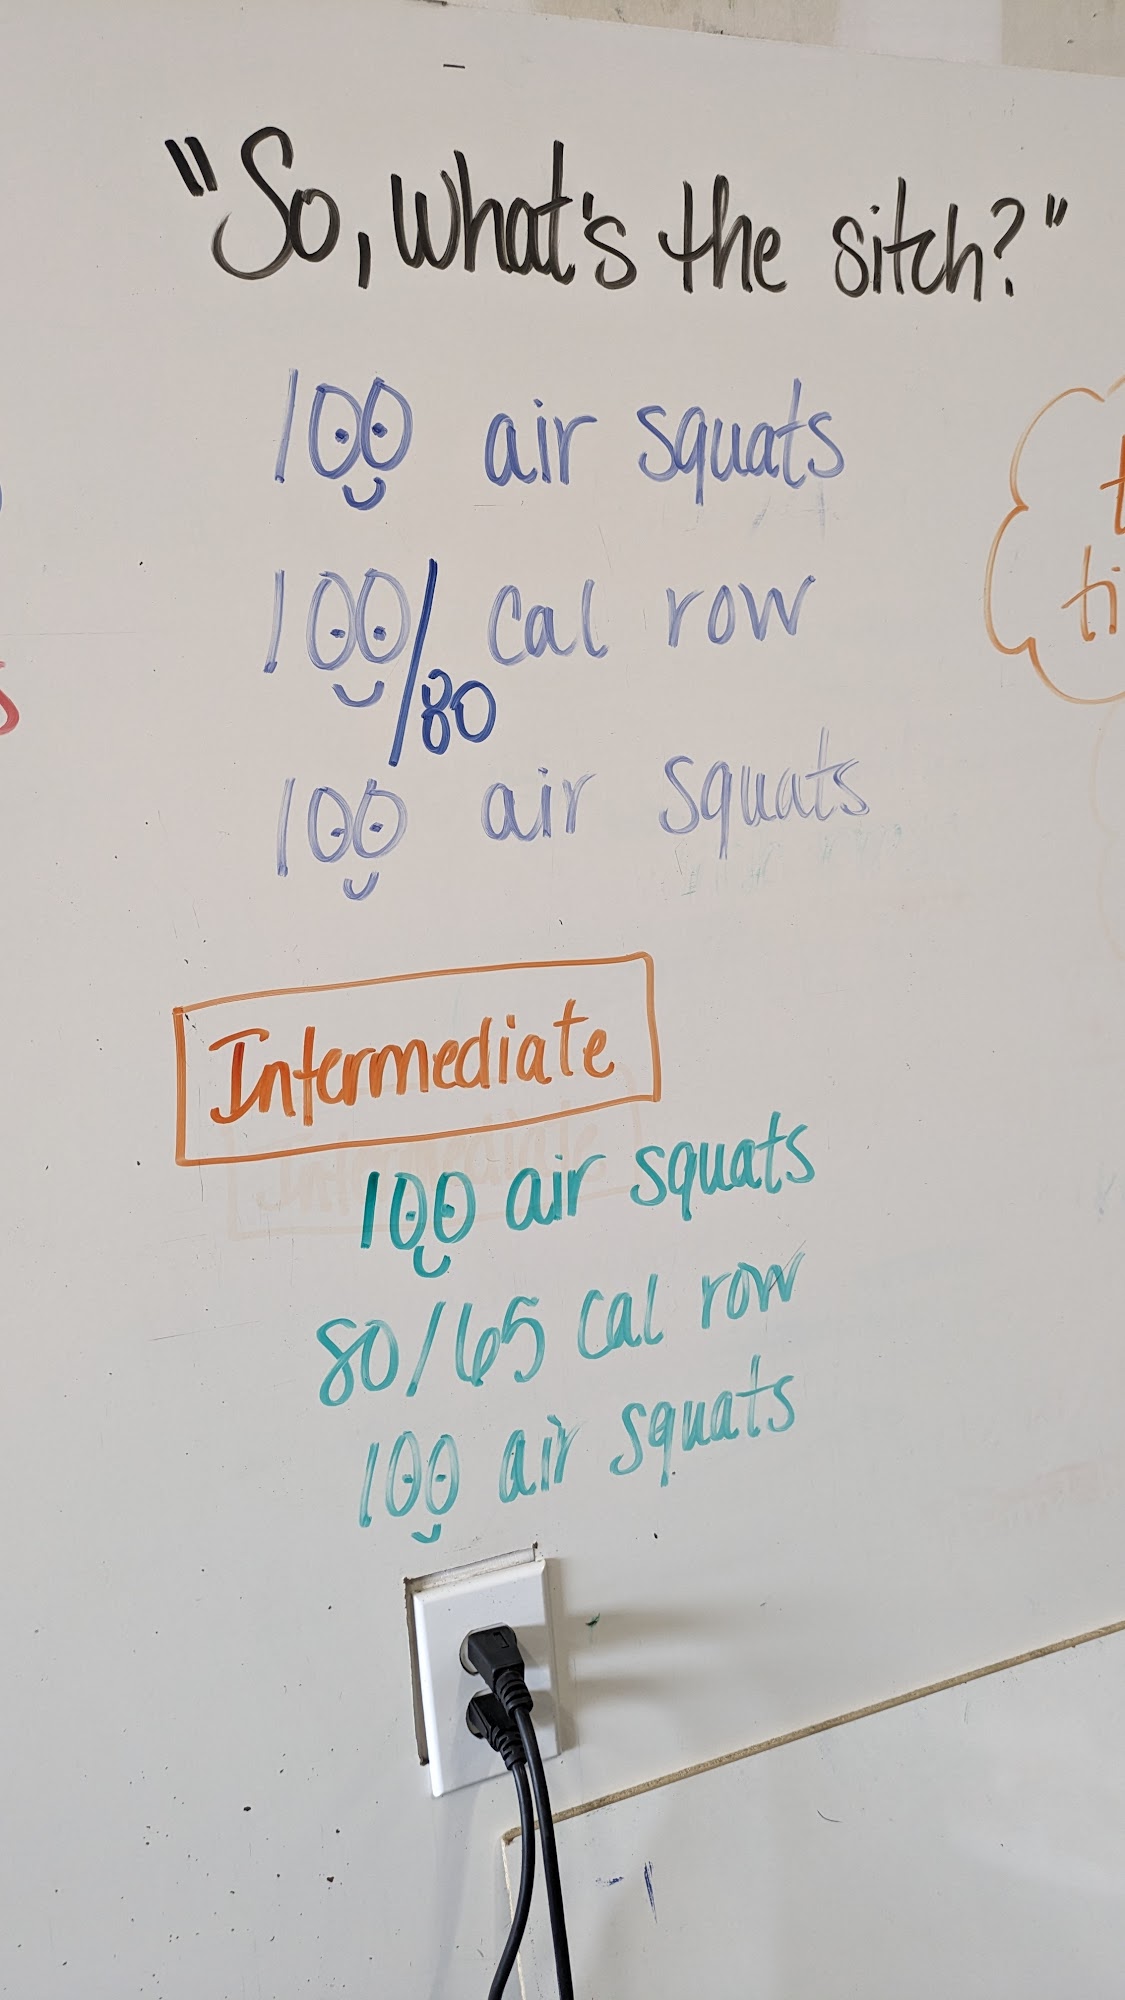 "So, what's the sitch?"
100 air squats
100/80 Cal row
100 air squats
Intermediate
100 air squats
80/65 Cal row
100 air squats